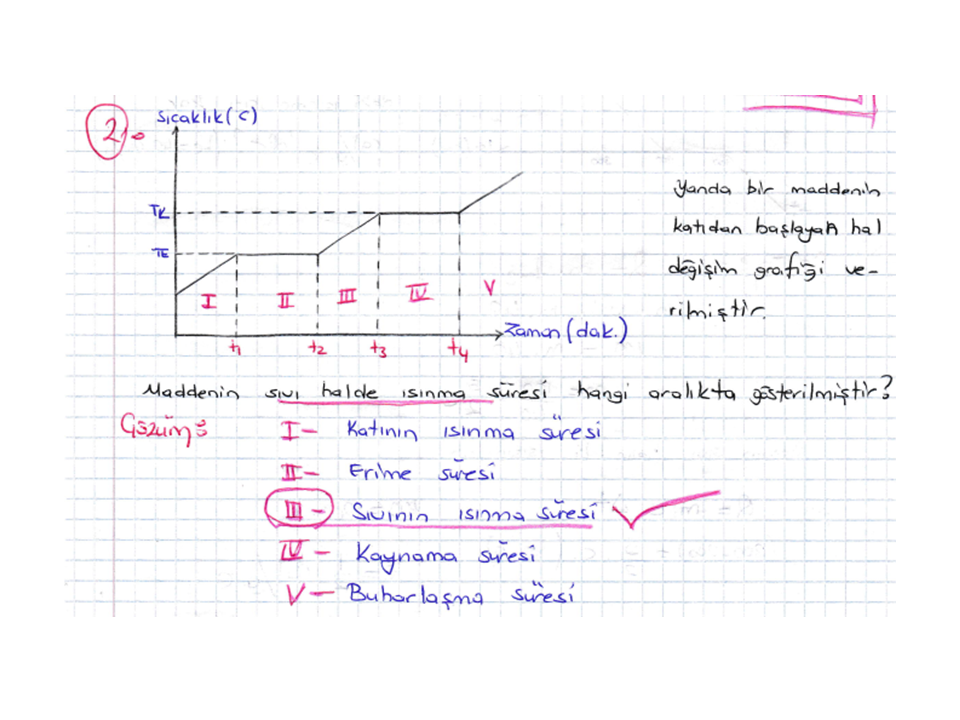 2.
Sıcaklık(C)
TK
TE
I II III IV V
t1 t2 t3 t4
Zaman (dak.)
Yanda bir maddenin
katıdan başlayan hal
değişim grafiği ve-
rilmiştir.
Maddenin sıvı halde ısınma süresi hangi aralıkta gösterilmiştir?
Çözüm:
I- Katının ısınma süresi
II- Erime süresi
III- Sıvının ısınma süresi
IV- Kaynama süresi
V- Buharlaşma süresi